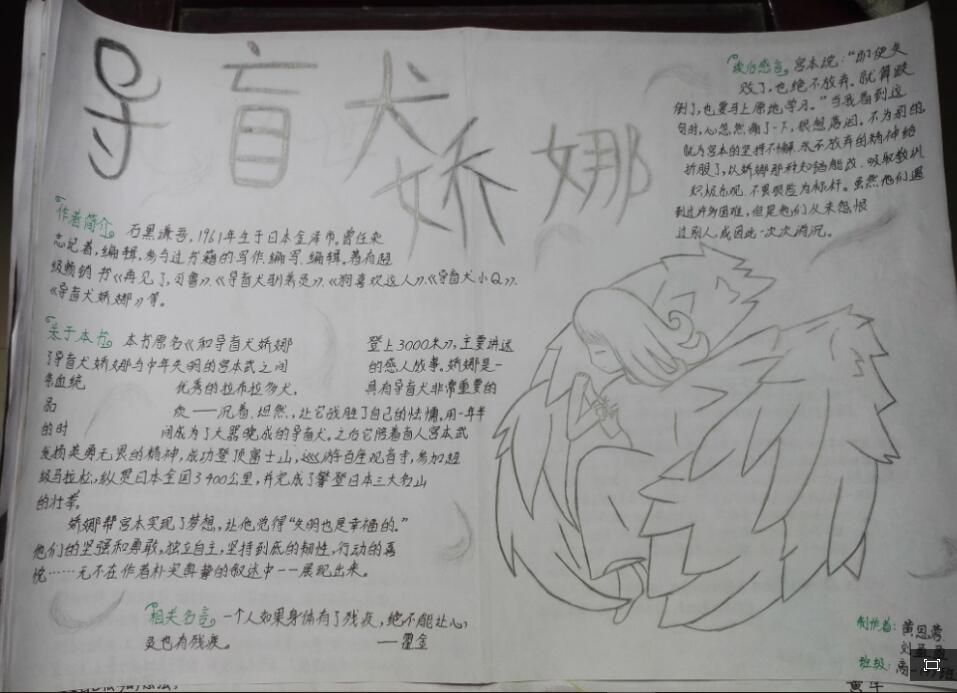 导盲犬
娇娜
作者简介 石黑谦吾,1961年生于日本金泽市。曾任杂
志记者,编辑,参与过书籍的写作、编写、编辑。著有超
级畅销书《再见了,可鲁》、《导盲犬驯养员》、《狗喜欢这人》、《导盲犬小Q》、
《导盲犬娇娜》等。
关于本书 本书原名《和导盲犬娇娜 登上3000米》,主要讲述
了导盲犬娇娜与中年失明的宫本武之间 的感人故事。娇娜是一
血统 优秀的拉布拉多犬。 具有导盲犬非常重要的
品 质——沉着、坦然,让它战胜了自己的怯懦,用一年半
的时 间成为了大器晚成的导盲犬。之后它陪着盲人宫本武
发扬英勇无畏的精神,成功登顶富士山,巡游百座观音寺,参加超
级马拉松,纵贯日本全国3400公里,并完成了攀登日本三大名山
的壮举。
娇娜帮宫本实现了梦想,让他觉得“失明也是幸福的。”
他们的坚强和勇敢,独立自主,坚持到底的韧性,行动的喜
悦……无不在作者朴实真挚的叙述中一一展现出来。
相关名言 一个人如果身体有了残疾,绝不能让心
灵也有残疾。 ——霍金
读后感言 宫本说:“即使失
败了,也绝不放弃。就算跌
倒了,也要马上原地学习。”当我看到这
句时,心忽然痛了一下,很想落泪。不为别的,
就为宫本的坚持不懈、永不放弃的精神给
折服了,以娇娜那种知错能改、吸取教训
积极乐观、不畏艰险为标杆。虽然他们遇
到过许多困难,但是他们从未怨恨
过别人,或因此一次次消沉。
制作者: 黄恩
刘
班级: 高一